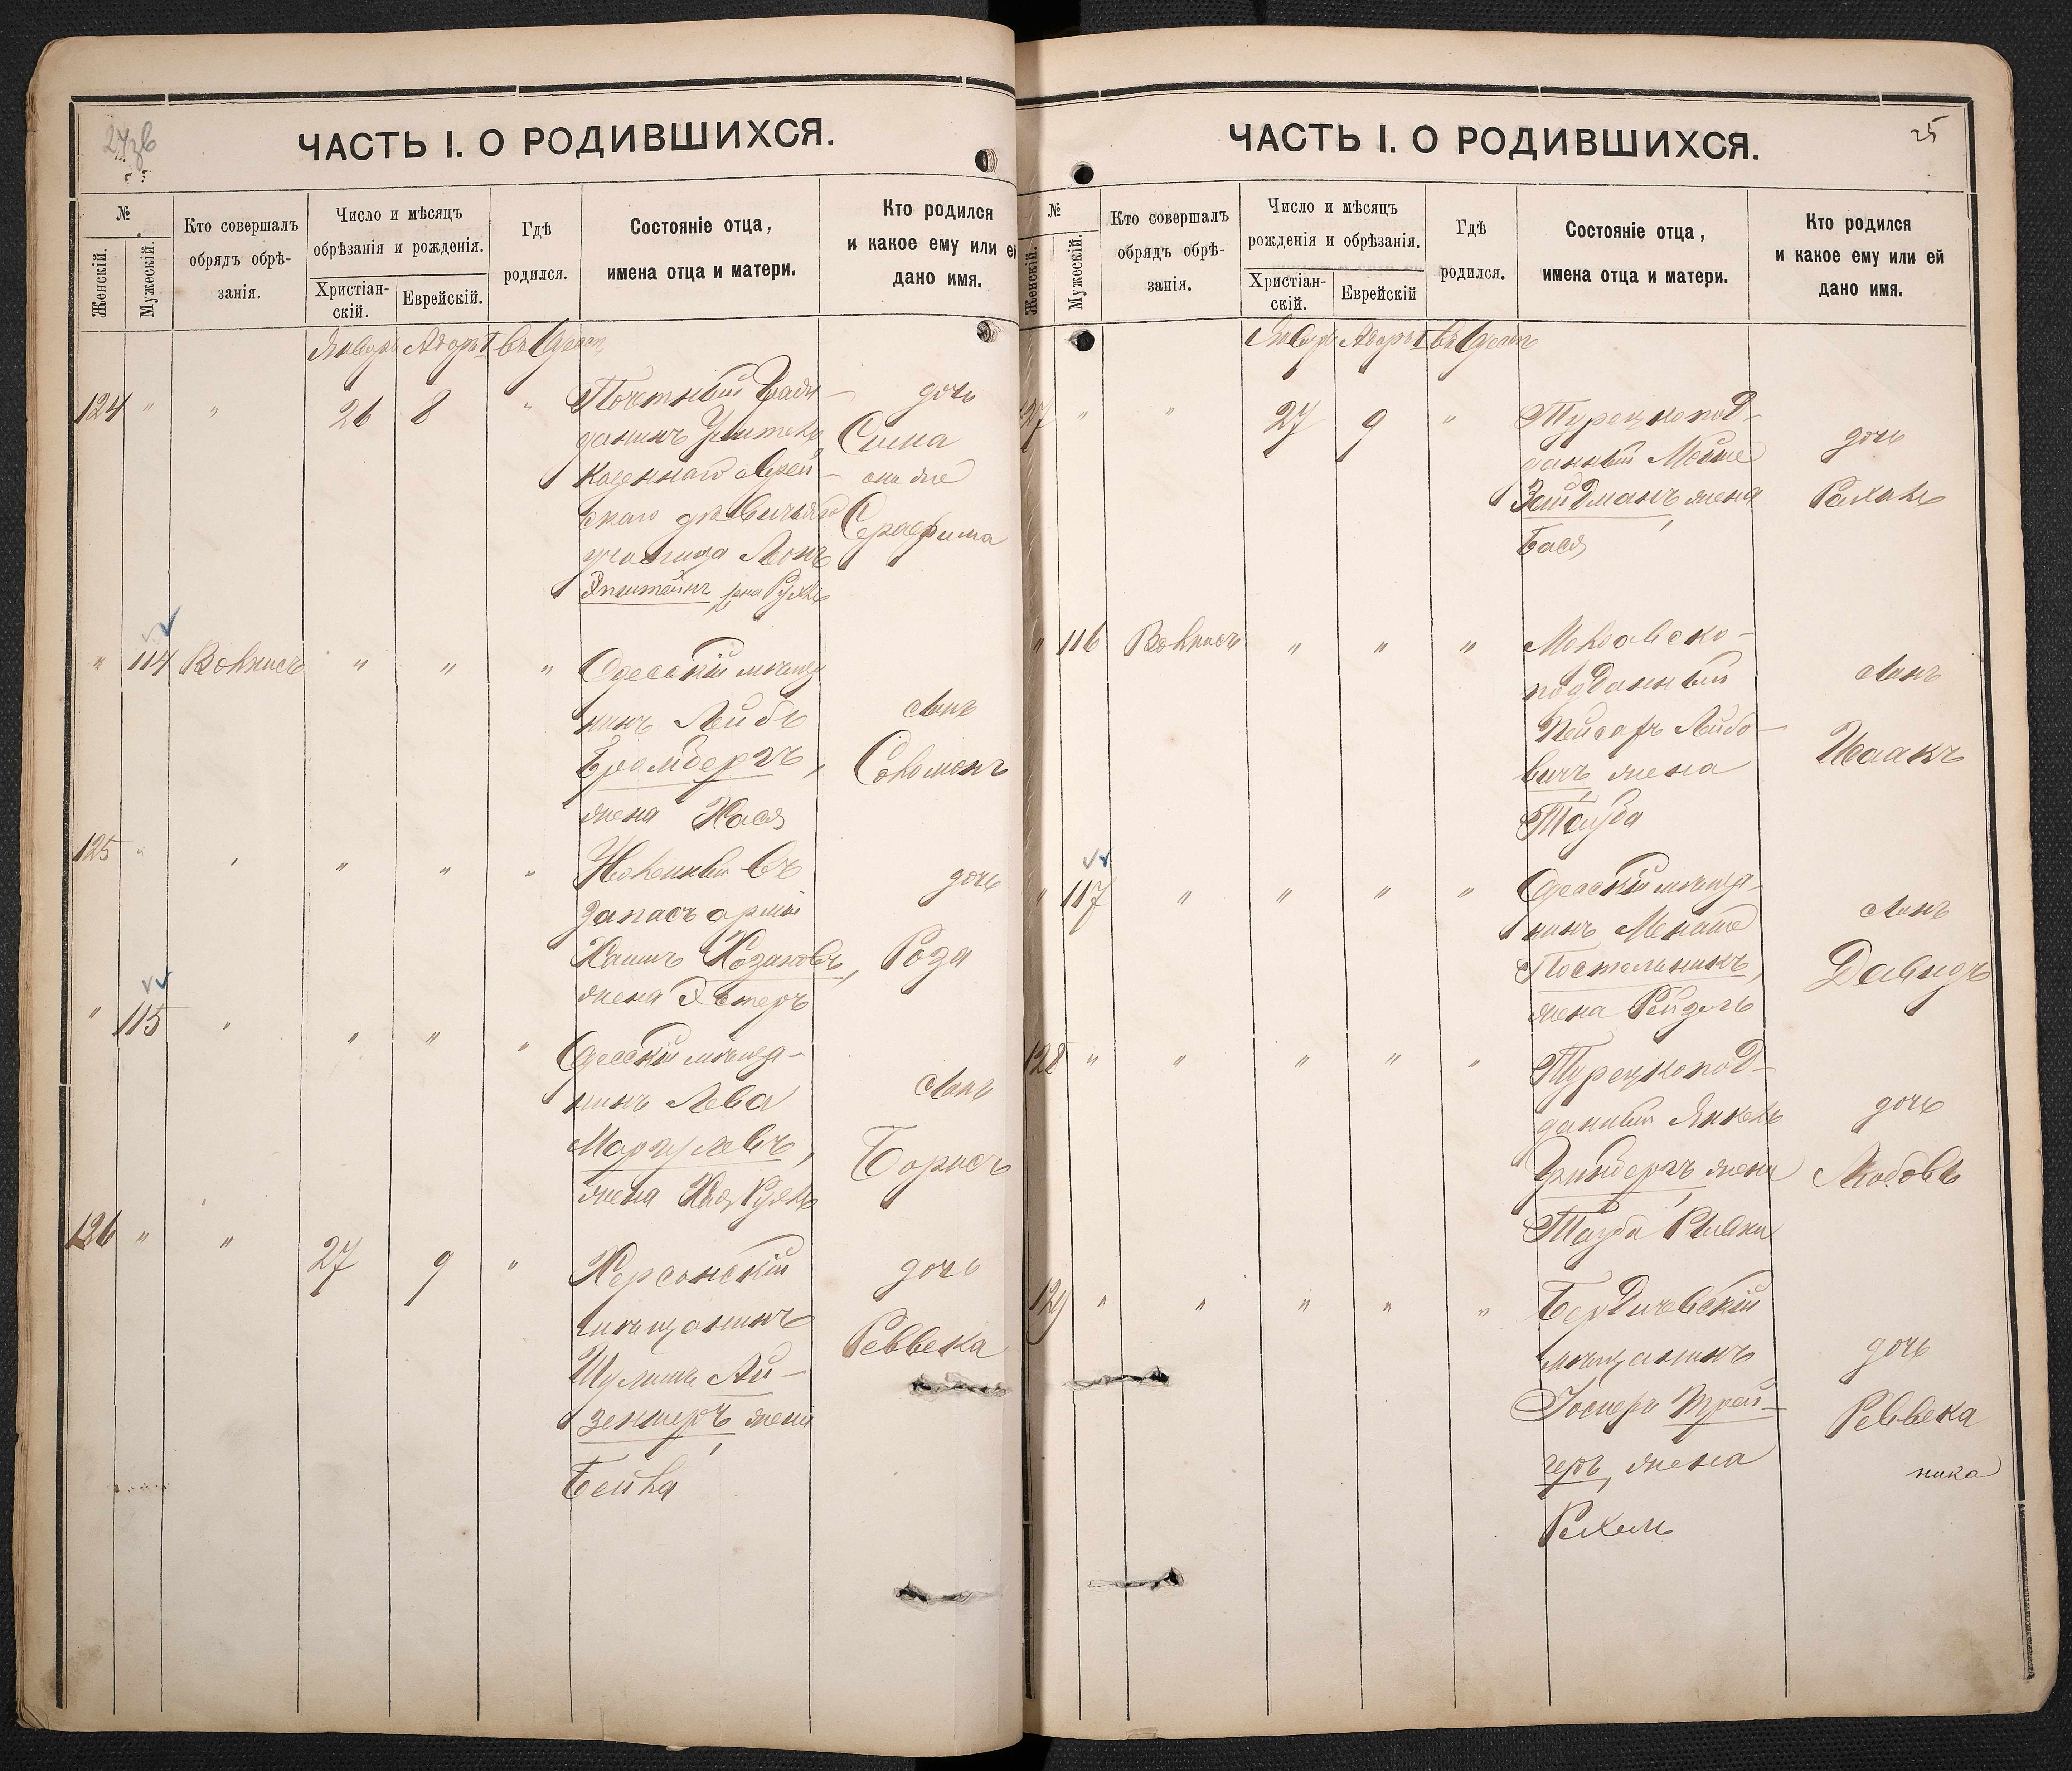 ЧАСТЬ I. О РОДИВШИХСЯ.
№
Женскій.
Мужескій.
Кто совершалъ
обрядъ обрѣ-
занія.
Число и мѣсяцъ
обрѣзанія и рожденія.
Христіан-
скій.
Еврейскій.
Гдѣ
родился.
Состояніе отца,
имена отца и матери.
Кто родился
и какое ему или ей
дано имя.
Январь Адаръ I въ Одессѣ
124 " " 26 8 "
Почетный Граж-
данинъ Учитель
Казеннаго Еврей-
скаго дѣвичьяго
училища Леонъ
Эпштейнъ, жена Рухль
дочь
Сима
она же
Серафима
" 114 Вольнисъ " " "
Одесскій мѣща-
нинъ Лейбъ
Бромбергъ,
жена Хася
сынъ
Соломонъ
125 " " " " "
Уволенный въ
запасъ арміи
Хаимъ Хозановъ,
жена Эстеръ
дочь
Роза
" 115 " " " "
Одесскій мѣща-
нинъ Лева
Маргулевъ,
жена Хая Рухль
сынъ
Борисъ
126 " " 27 9 "
Херсонскій
мѣщанинъ
Шулимъ Ай-
зеншеръ, жена
Бейла
дочь
Реввека
ЧАСТЬ I. О РОДИВШИХСЯ.
25
№
Женскій.
Мужескій.
Кто совершалъ
обрядъ обрѣ-
занія.
Число и мѣсяцъ
рожденія и обрѣзанія.
Христіан-
скій.
Еврейскій
Гдѣ
родился.
Состояніе отца,
имена отца и матери.
Кто родился
и какое ему или ей
дано имя.
Январь Адаръ I въ Одессѣ
127 " " 27 9 "
Турецкопод-
данный Мойше
Зайдманъ, жена
Бася
дочь
Рахиль
" 116 Вольнисъ " " "
Молдавско-
подданный
Пейсахъ Лейбо-
вичъ, жена
Тауба
сынъ
Исаакъ
" 117 " " " "
Одесскій мѣща-
нинъ Менаше
Постельникъ,
жена Рейзель
сынъ
Давидъ
128 " " " " "
Турецкопод-
данный Янкель
Гринбергъ, жена
Тауба Рывка
дочь
Любовь
129 " " " " "
Бердичевскій
мѣщанинъ
Іосифъ Трей-
геръ, жена
Рахиль
дочь
Реввека